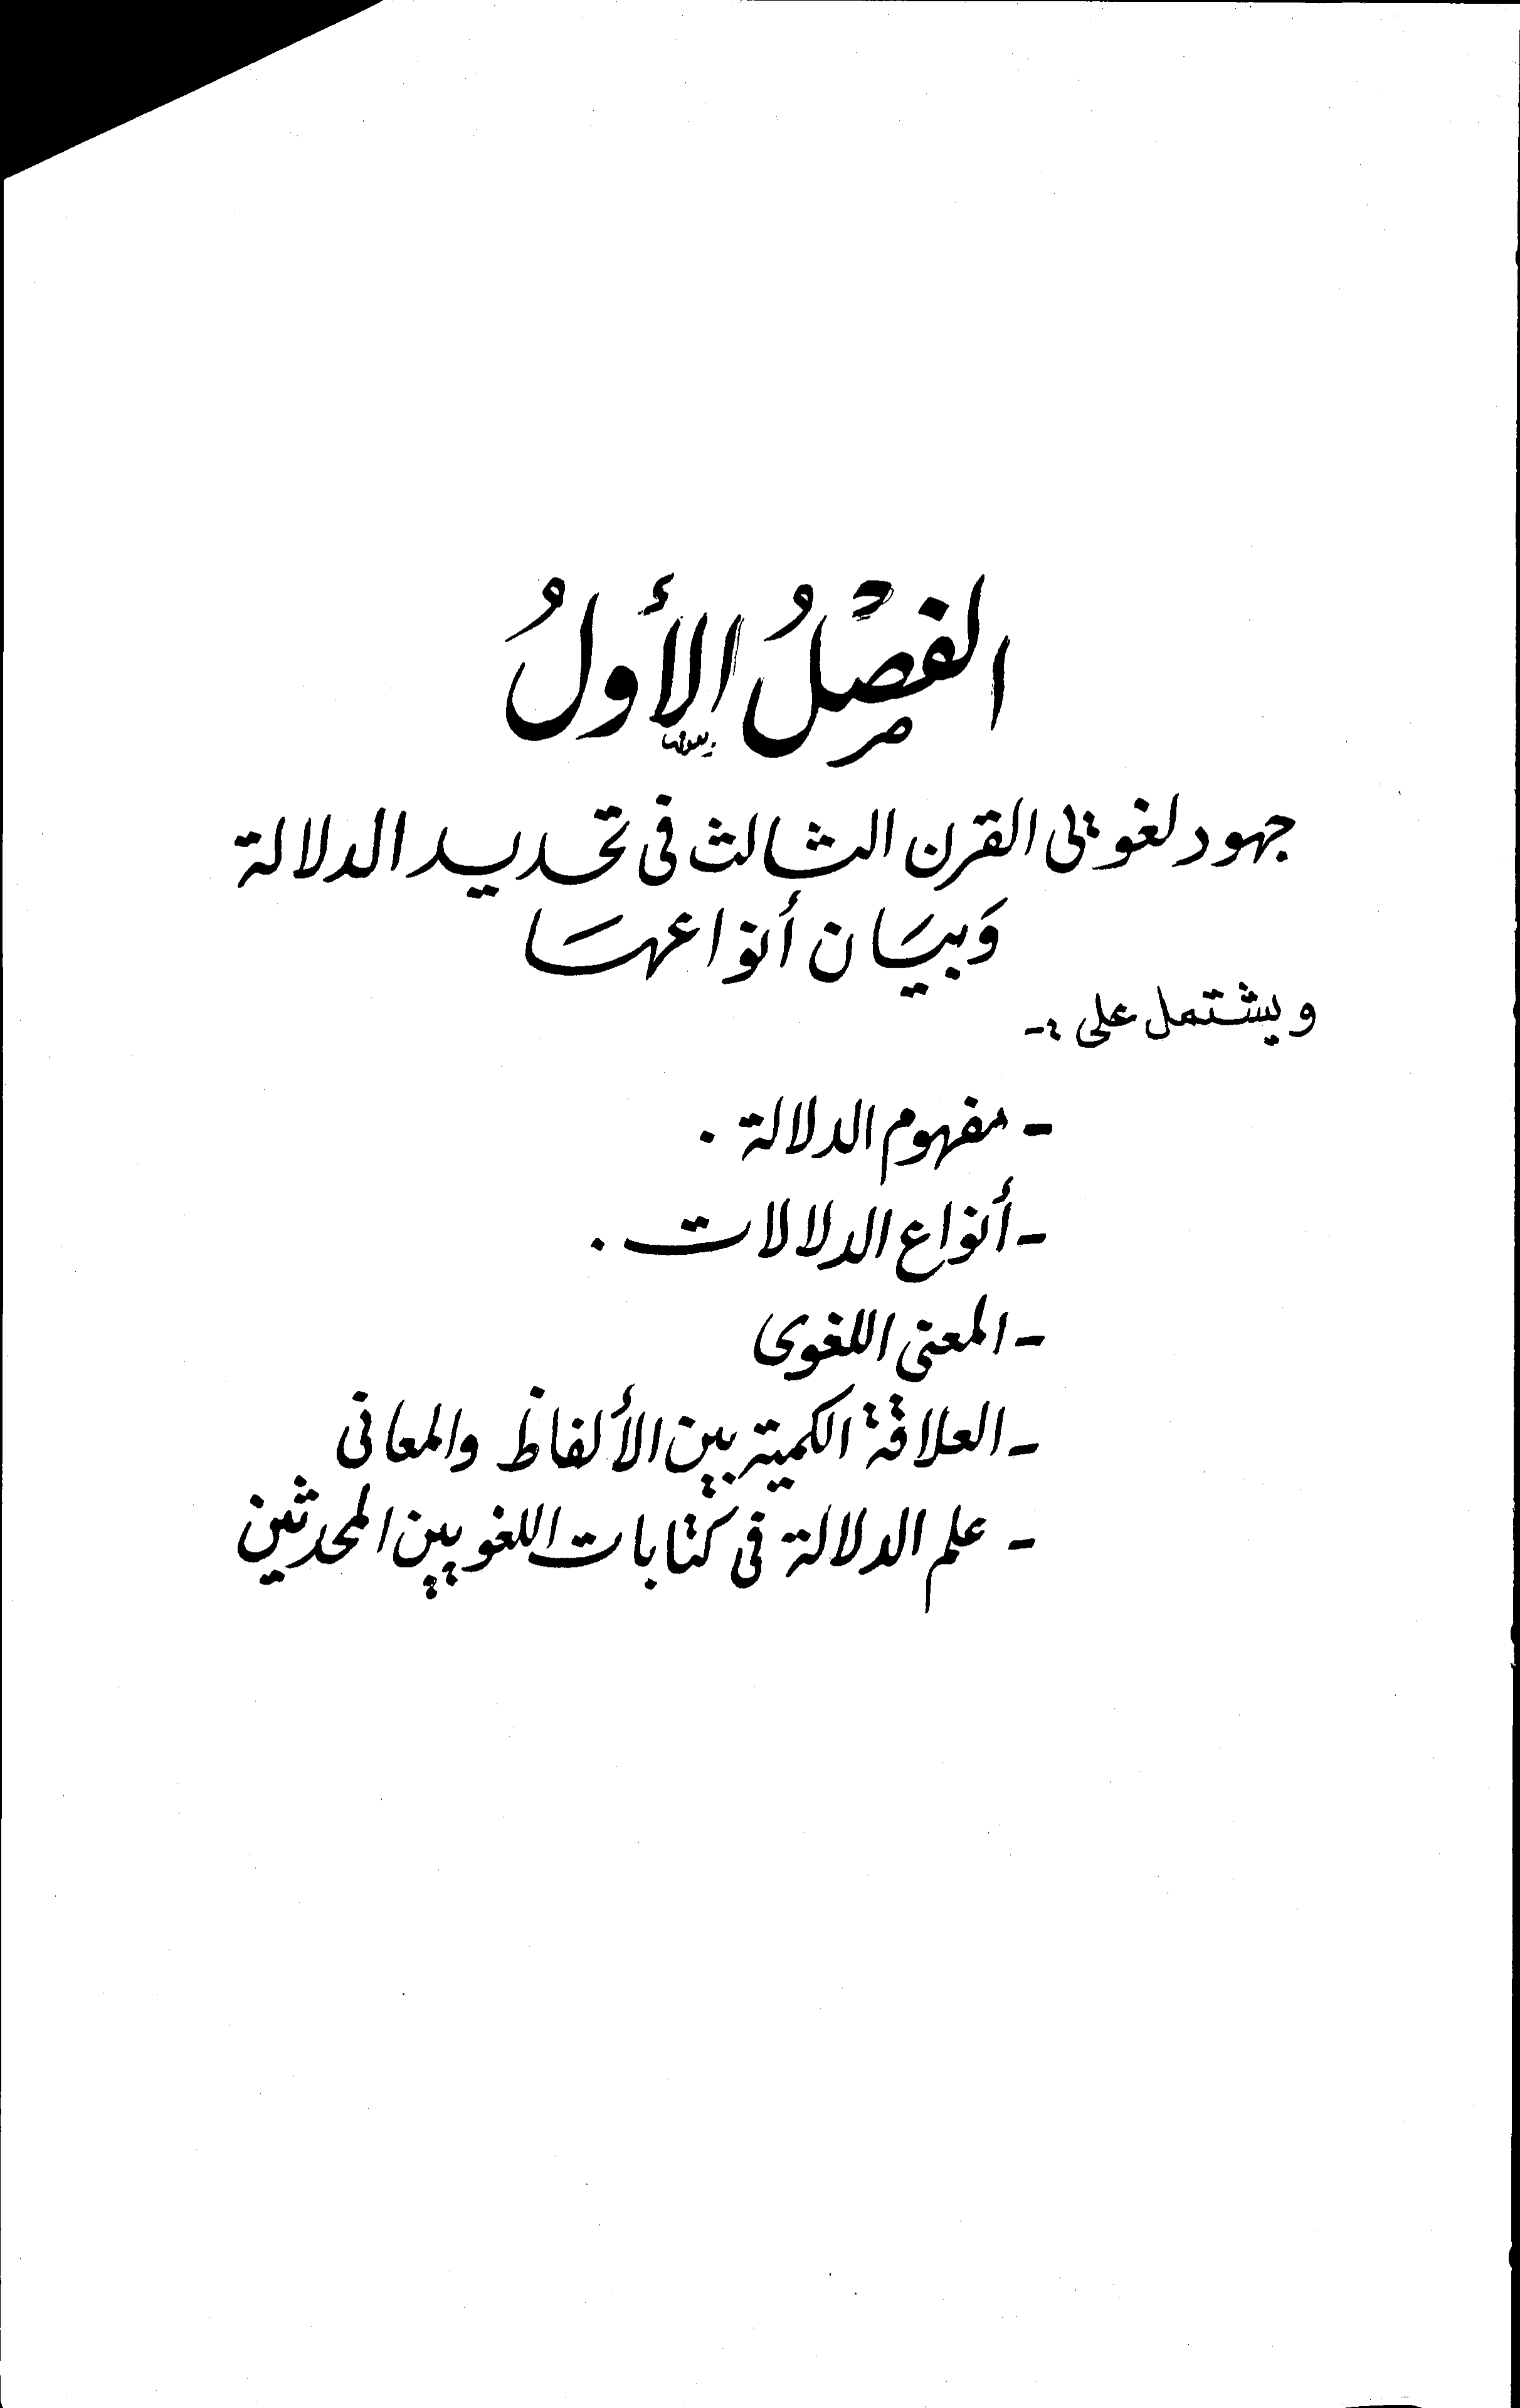 الفصلُ الأولُ
جهود لغويى القرن الثالث فى تحديد الدلالة
وَبيَان أنواعهَا
ويشتمل على :-
- مفهوم الدلالة .
- أنواع الدلالات .
- المعنى اللغوى
- العلاقة الكمية بين الألفاظ والمعانى
- علم الدلالة فى كتابات اللغويين المحدثين